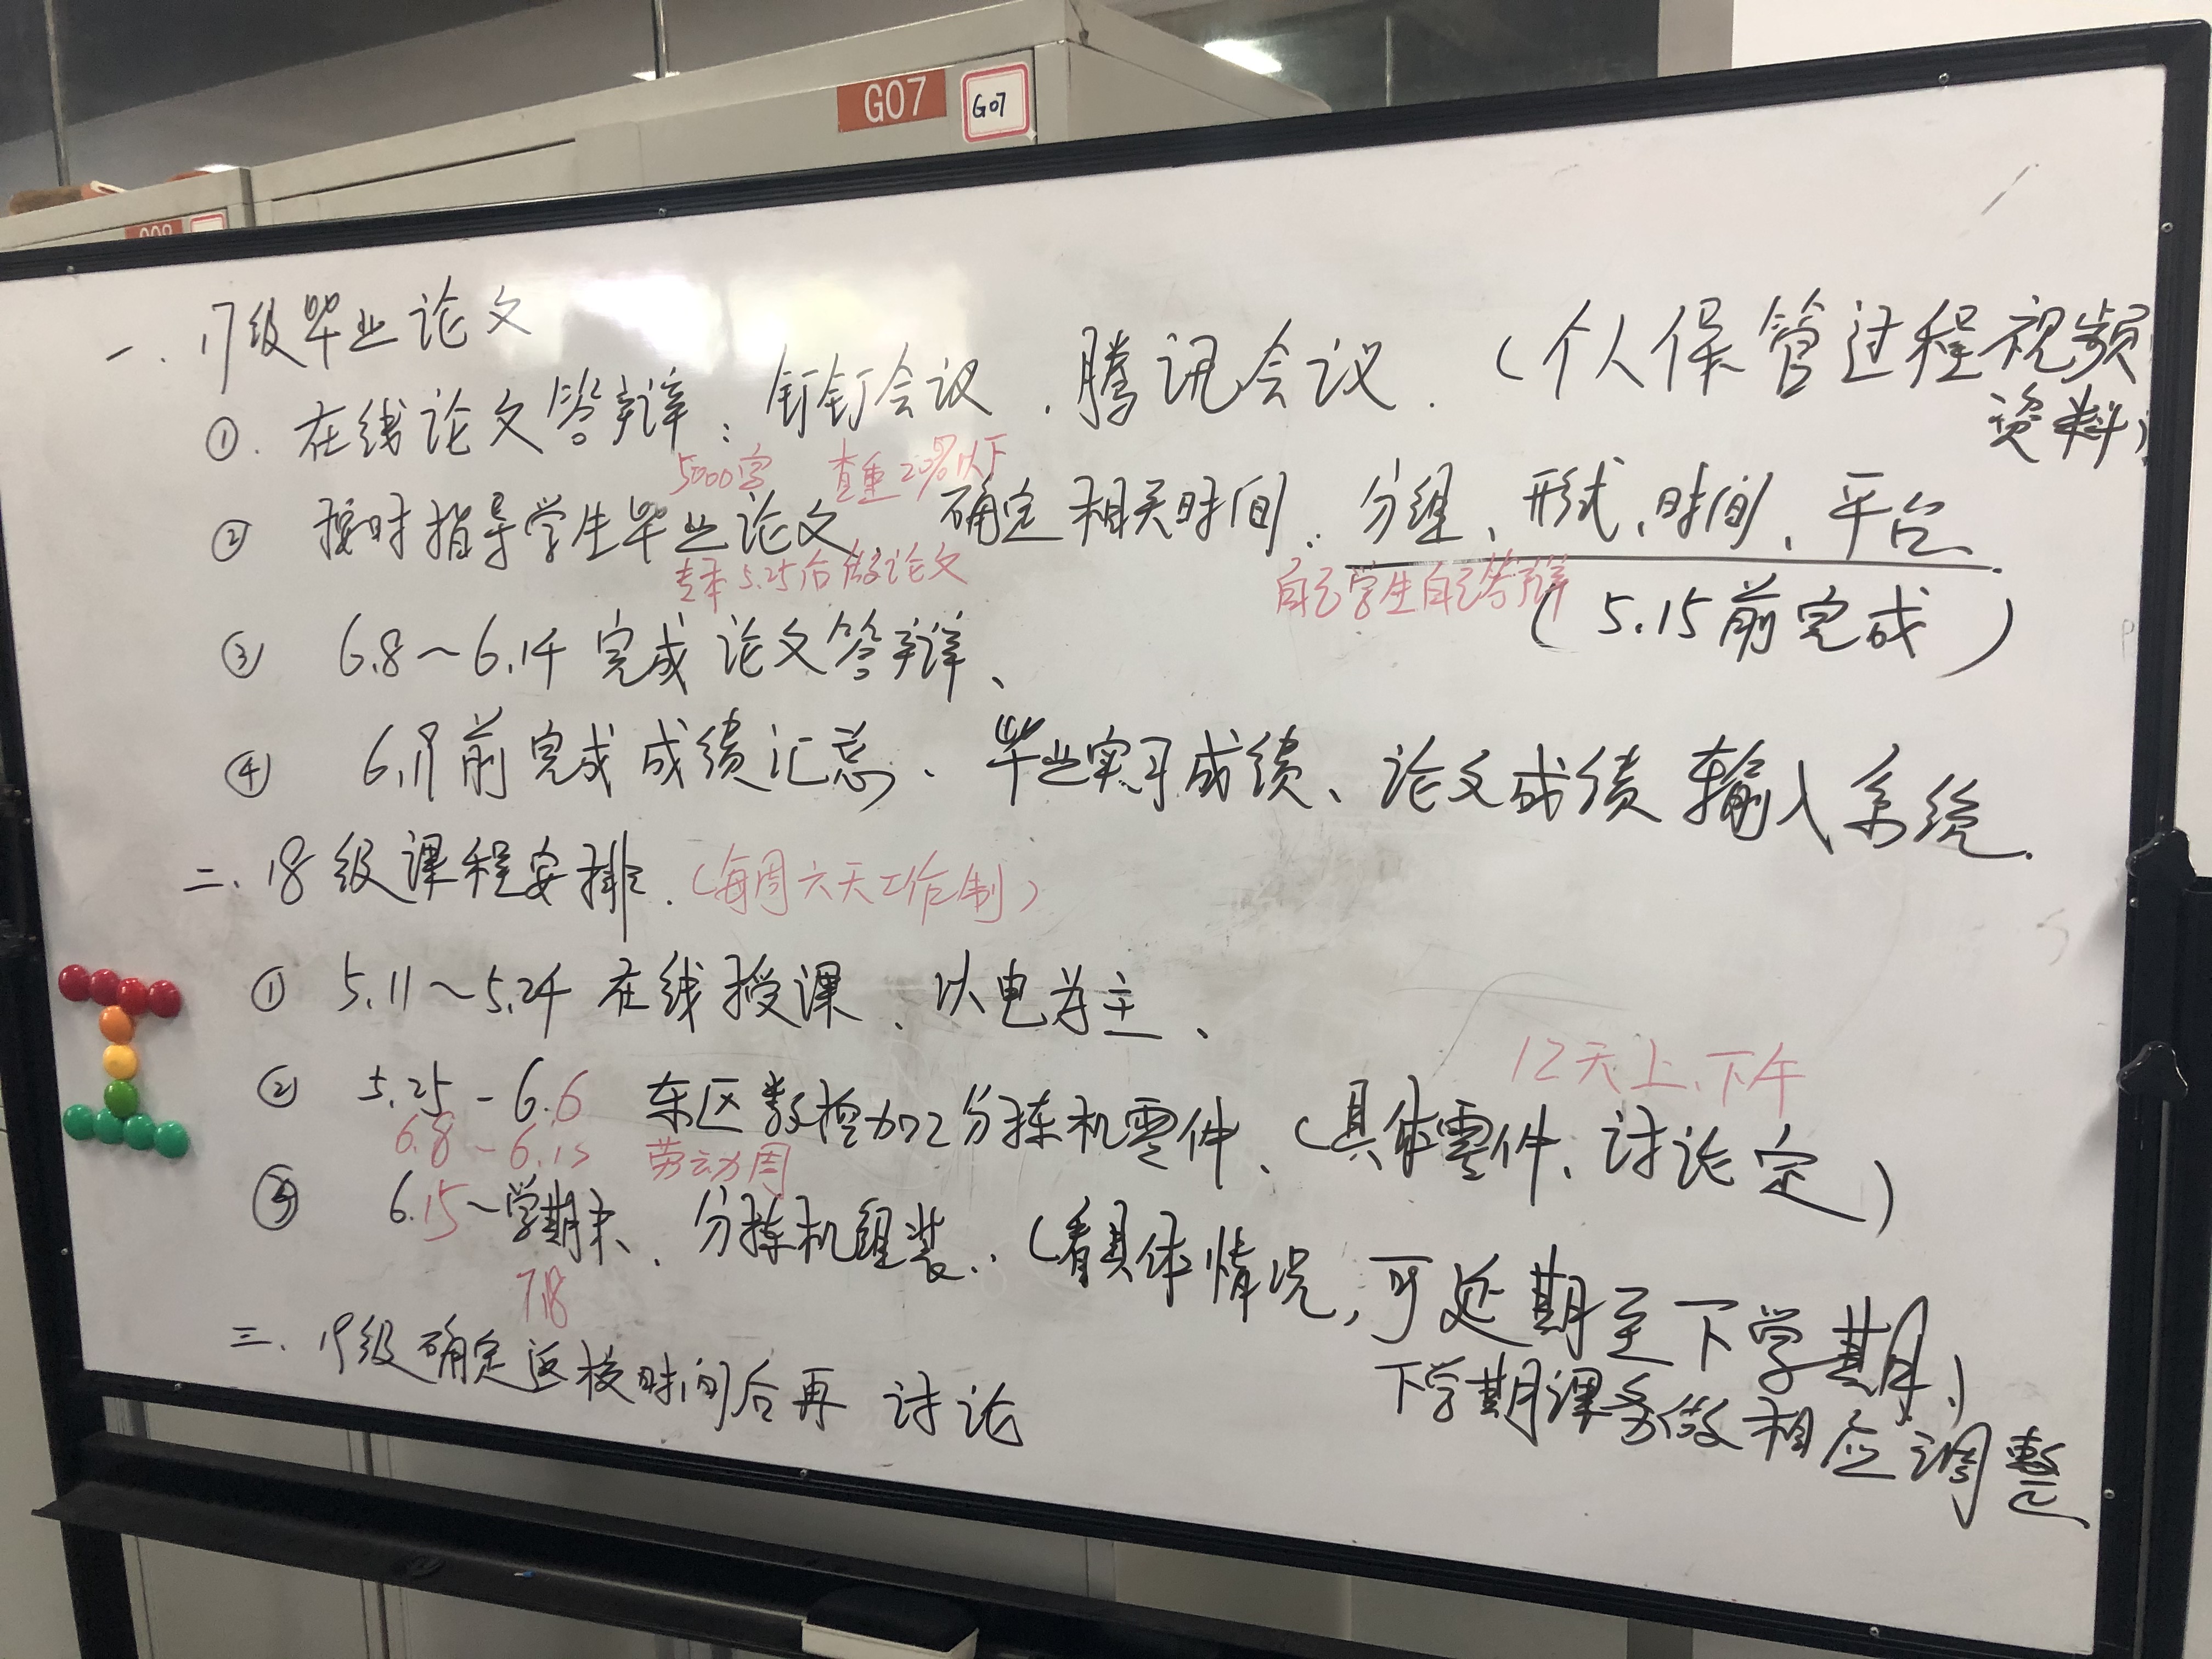 G07
G07
一、17级毕业论文
①. 在线论文答辩：钉钉会议、腾讯会议.（个人保管过程视频
资料）
5000字 查重20%以下
② 按时指导学生毕业论文、确定相关时间、分组、形式、时间、平台
专本5.25后做论文 自己学生自己答辩
（5.15前完成）
③ 6.8～6.14 完成论文答辩、
④ 前完成成绩汇总、毕业实习成绩、论文成绩输入系统.
二、18级课程安排.（每周六天工作制）
① 5.11～5.24 在线授课、以电为主、
12天上、下午
② 5.25-6.6 东区数控加工分拣机零件、（具体零件、讨论定）
6.8-6.13 劳动周
③ 6.15～学期末、分拣机组装、（看具体情况，可延期至下学期，
7.8
下学期课务做相应调整
三、19级确定返校时间后再讨论